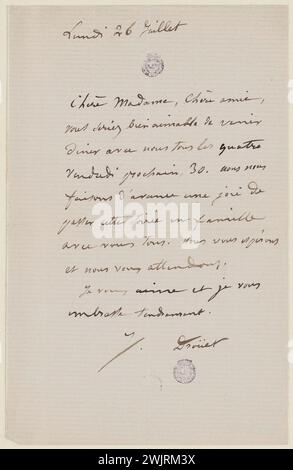 Lundi 26 Juillet
Chère Madame, chère amie,
vous seriez bien aimable de venir
dîner avec nous tous les quatre
vendredi prochain, 30. nous nous
faisons d'avance une joie de
passer cette soirée en famille
avec vous tous. Nous vous espérons
et nous vous attendons.
Je vous aime et je vous
embrasse tendrement.
J. Drouet
alamy
Image ID: 2WJRM3X
www.alamy.com